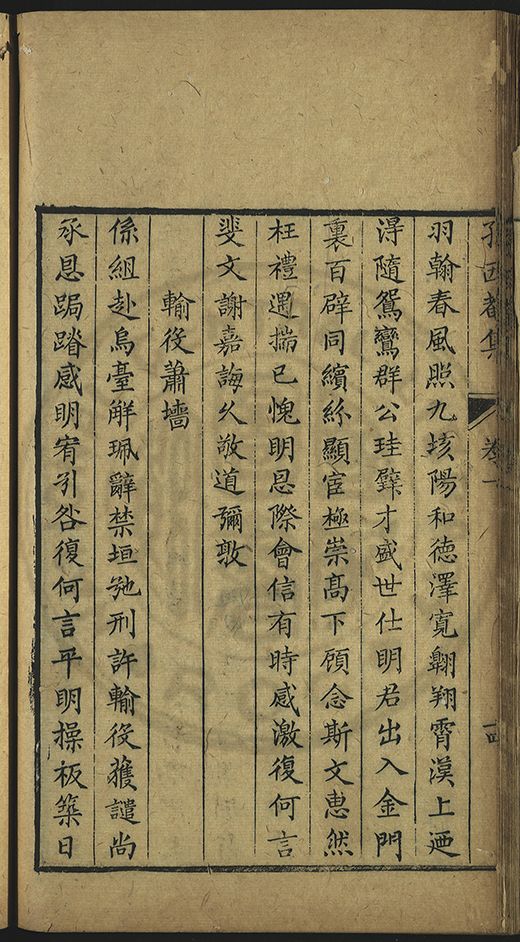 西菴集 卷
羽翰春風照九垓陽和德澤寬翺翔霄漢上迺
淂隨鴛鸞群公珪璧才盛世仕明君出入金門
裏百辟同繽紛顯宦極崇髙下顧念斯文恵然
枉禮遇揣已愧明恩際會信有時感激復何言
斐文謝嘉誨久敬道彌敦
輸役蕭墻
係組赴烏臺觧珮辭禁垣弛刑許輸役獲譴尚
承恩跼蹐感明宥引咎復何言平明操板築日